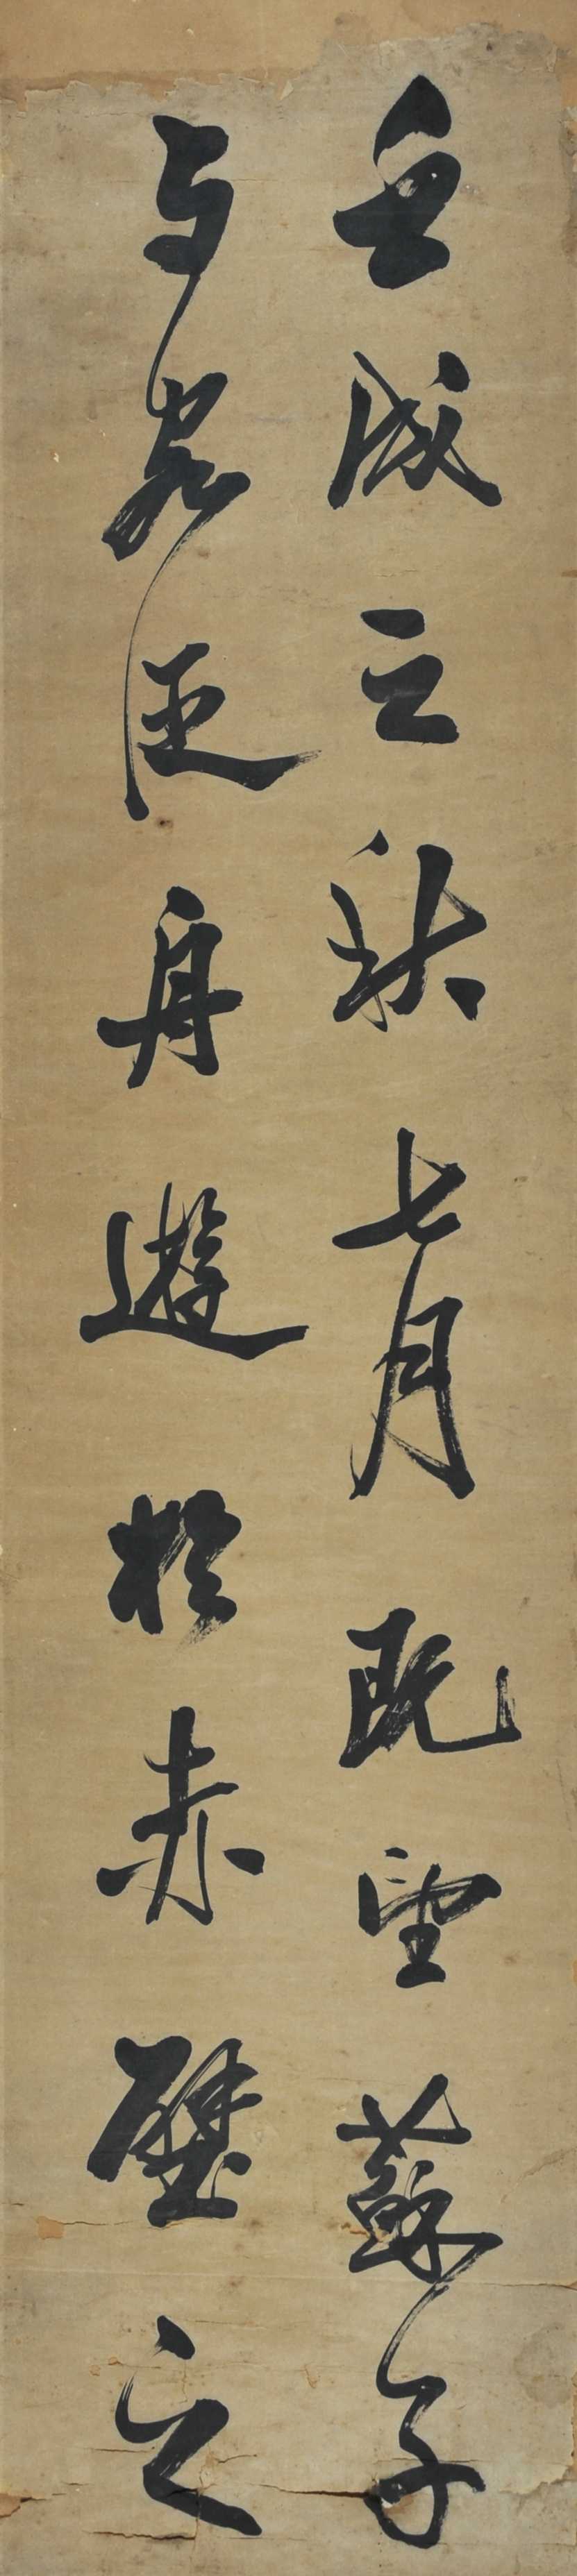 壬戌之秋七月既望蘇子
与客泛舟遊於赤壁之